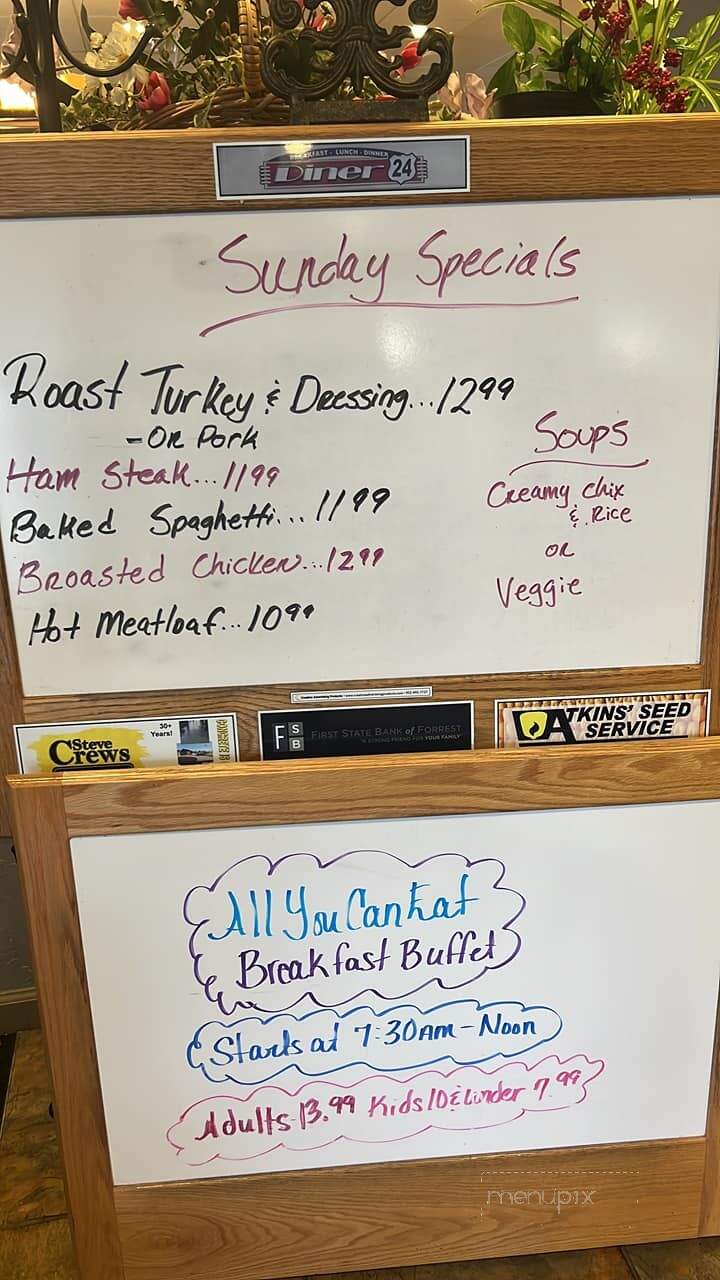 BREAKFAST - LUNCH - DINNER
Diner 24
Sunday Specials
Roast Turkey & Dressing...12 99
- OR Pork
Ham Steak...11 99
Baked Spaghetti...11 99
Broasted Chicken...12 99
Hot Meatloaf...10 99
Soups
Creamy Chix
& Rice
OR
Veggie
Steve
Crews
30+
Years!
FSB
FIRST STATE BANK of FORREST
A STRONG FRIEND FOR YOUR FAMILY
ATKINS' SEED
SERVICE
All You Can Eat
Breakfast Buffet
Starts at 7:30AM - Noon
Adults 13.99 Kids 10 & under 7.99
menupix